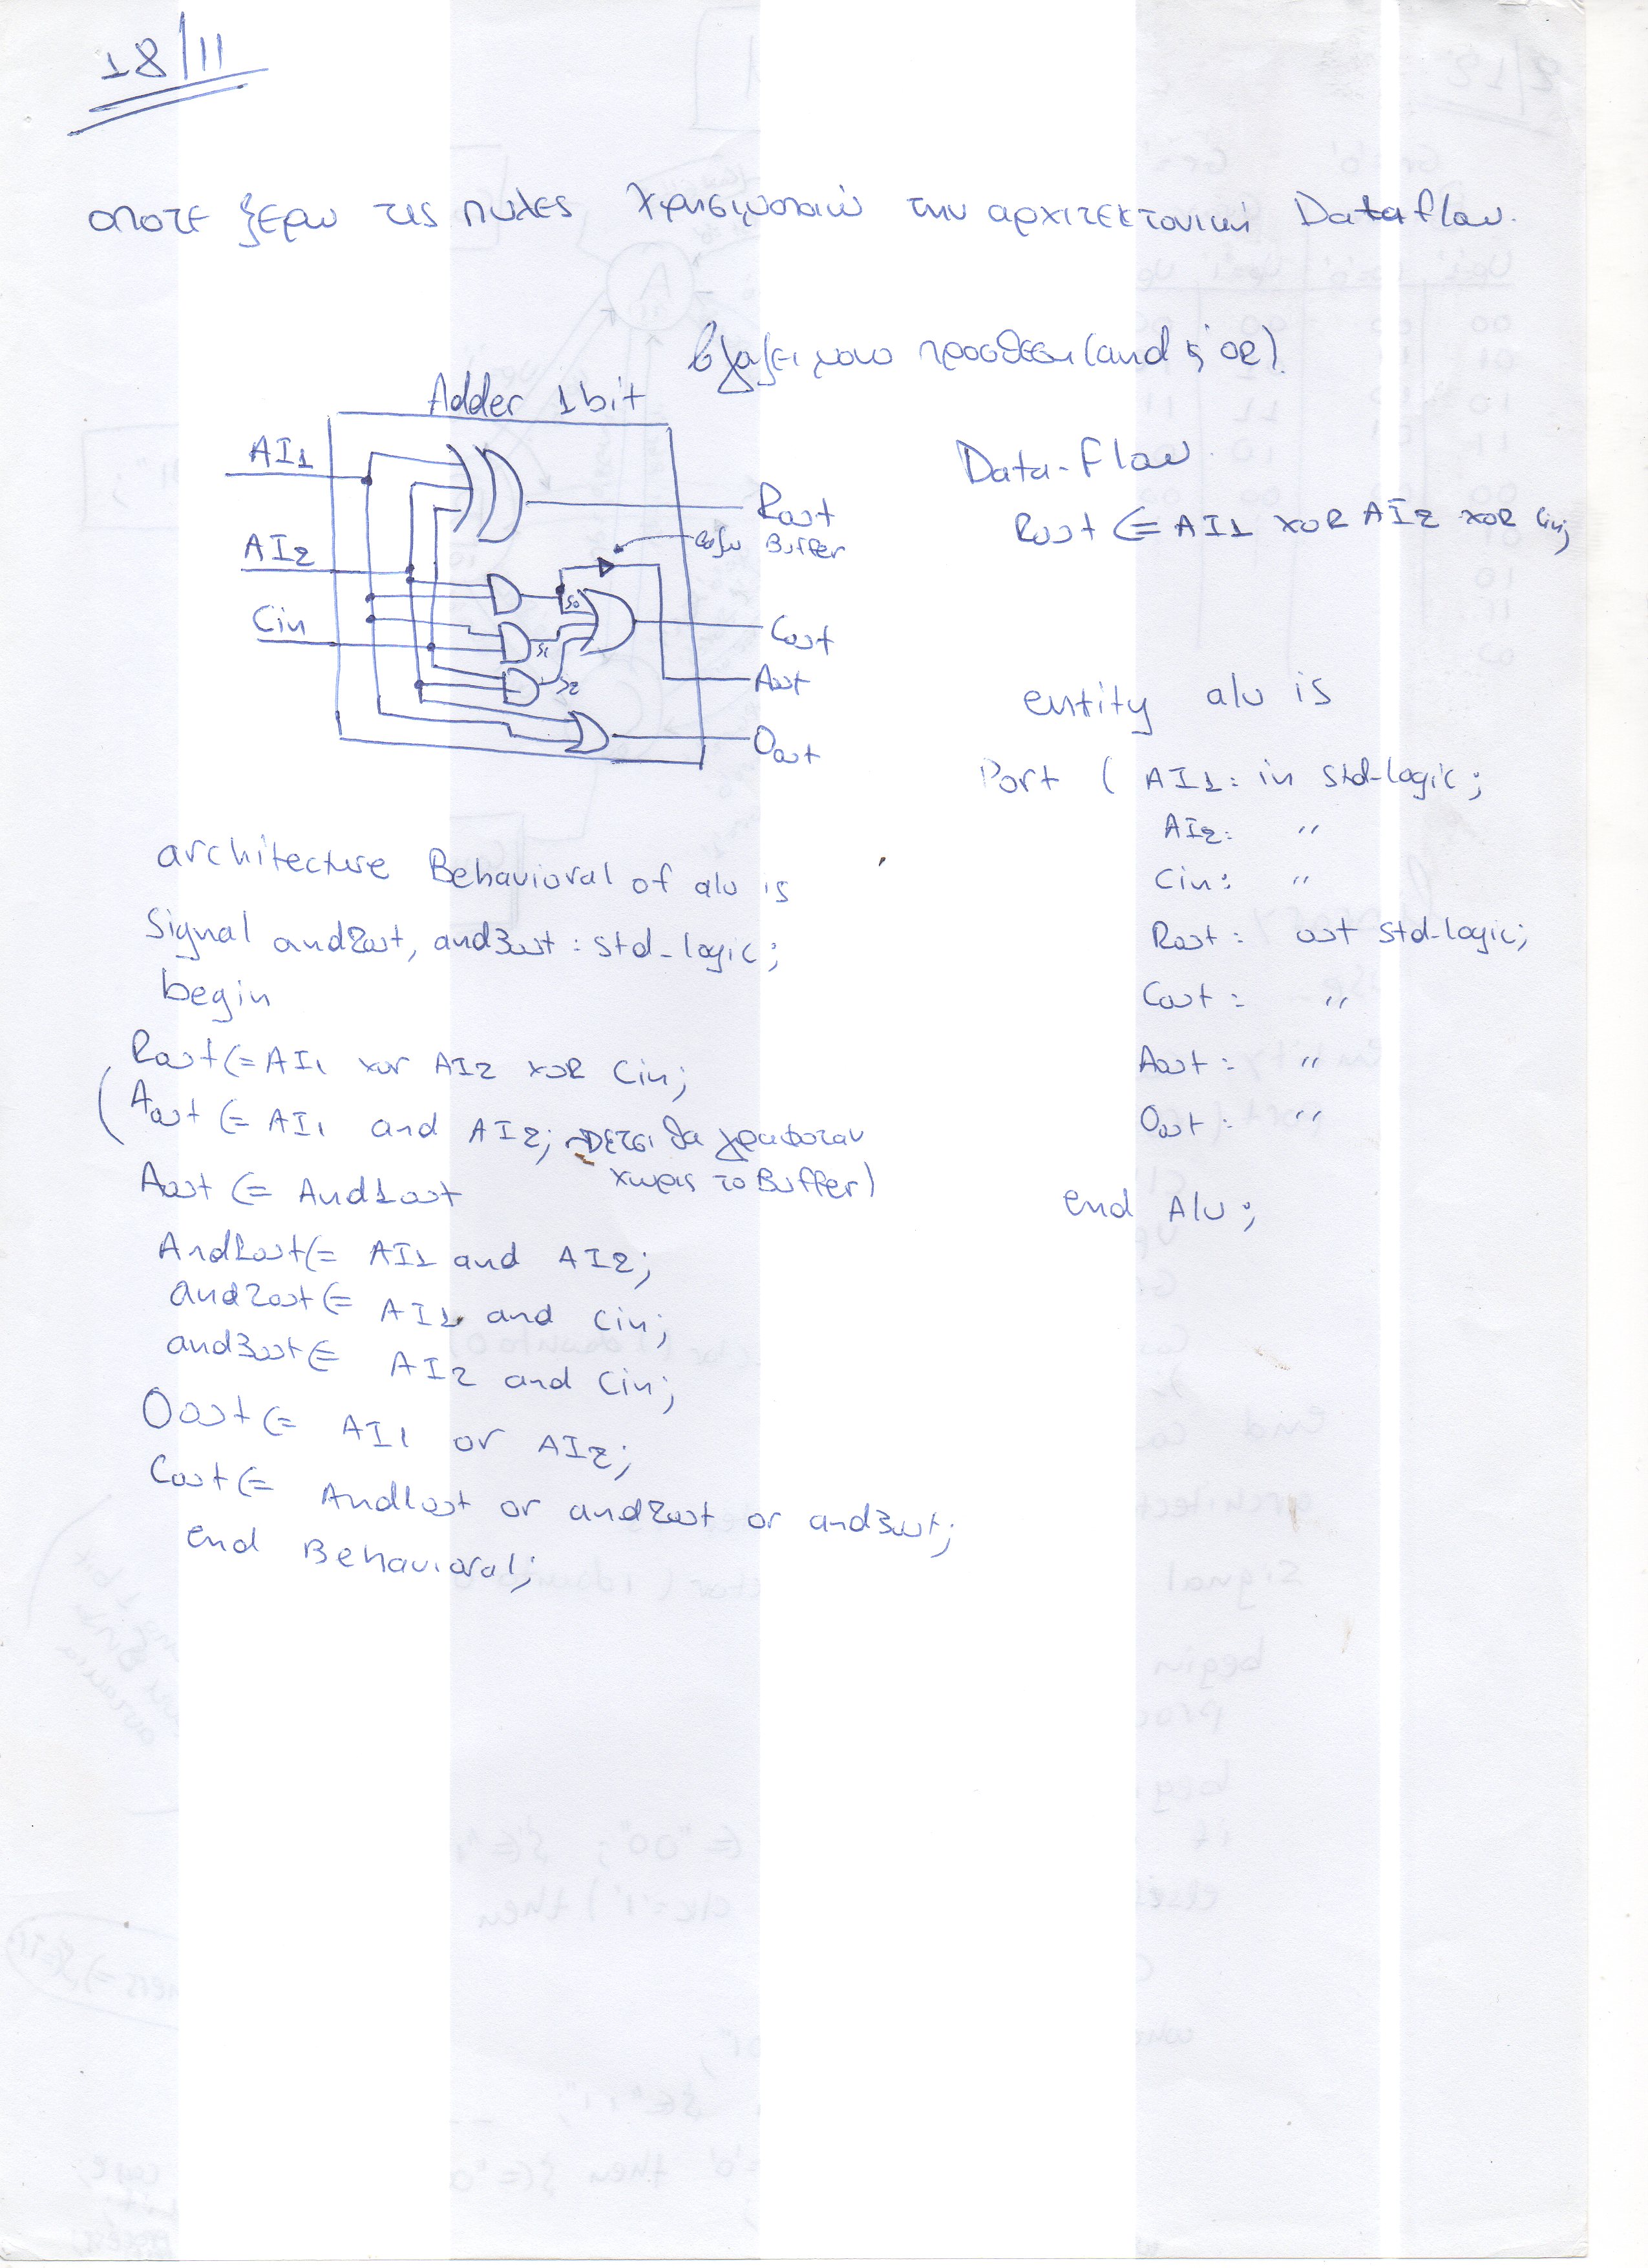 18/11
οποτε ξερω τις πυλες χρησιμοποιώ την αρχιτεκτονική Dataflow.
βγαζει μονο προσθεση (and ή OR).
Adder 1bit
AI1
AI2
Cin
Rout
βαζω Buffer
S0
S1
S2
Cout
Aout
Oout
Data-flow
Rout <= AI1 XOR AI2 XOR Cin;
entity alu is
Port ( AI1: in std-logic;
AI2: "
Cin: "
Rout: out std-logic;
Cout: "
Aout: "
Oout: "
end Alu;
architecture Behavioral of alu is
Signal and2out, and3out: std-logic;
begin
Rout <= AI1 xor AI2 XOR Cin;
(Aout <= AI1 and AI2; ετσι θα γραφοταν
χωρις το Buffer)
Aout <= And1out
And1out <= AI1 and AI2;
and2out <= AI1 and Cin;
and3out <= AI2 and Cin;
Oout <= AI1 or AI2;
Cout <= And1out or and2out or and3out;
end Behavioral;